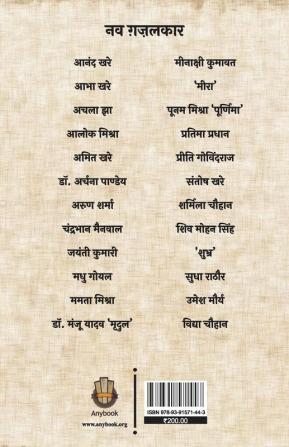 नव ग़ज़लकार
आनंद खरे
आभा खरे
अचला झा
आलोक मिश्रा
अमित खरे
डॉ. अर्चना पाण्डेय
अरुण शर्मा
चंद्रभान मैनवाल
जयंती कुमारी
मधु गोयल
ममता मिश्रा
डॉ. मंजू यादव 'मृदुल'
मीनाक्षी कुमावत
'मीरा'
पूनम मिश्रा 'पूर्णिमा'
प्रतिमा प्रधान
प्रीति गोविंदराज
संतोष खरे
शर्मिला चौहान
शिव मोहन सिंह
'शुभ्र'
सुधा राठौर
उमेश मौर्य
विद्या चौहान
Anybook
www.anybook.org
ISBN 978-93-91571-44-3
₹200.00